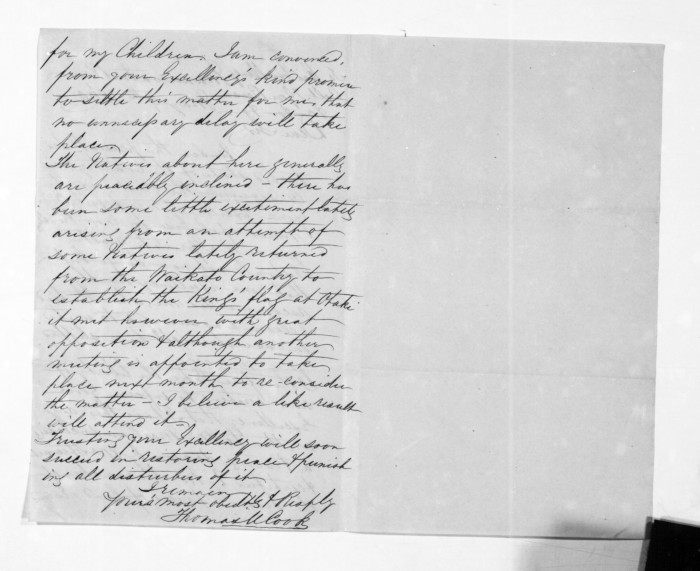 for my Children. I am convinced,
from your Excellency's kind promise
to settle this matter for me, that
no unnecessary delay will take
place.
The Natives about here generally
are peaceably inclined - there has
been some little excitement lately
arising from an attempt of
some Natives lately returned
from the Waikato Country to
establish the King's flag at Otaki
it met however with great
opposition & although another
meeting is appointed to take
place next month to re-consider
the matter - I believe a like result
will attend it.
Trusting your Excellency will soon
succeed in restoring peace & punish
ing all disturbers of it
I remain
Yours most obedtly & Respfly
Thomas U Cook